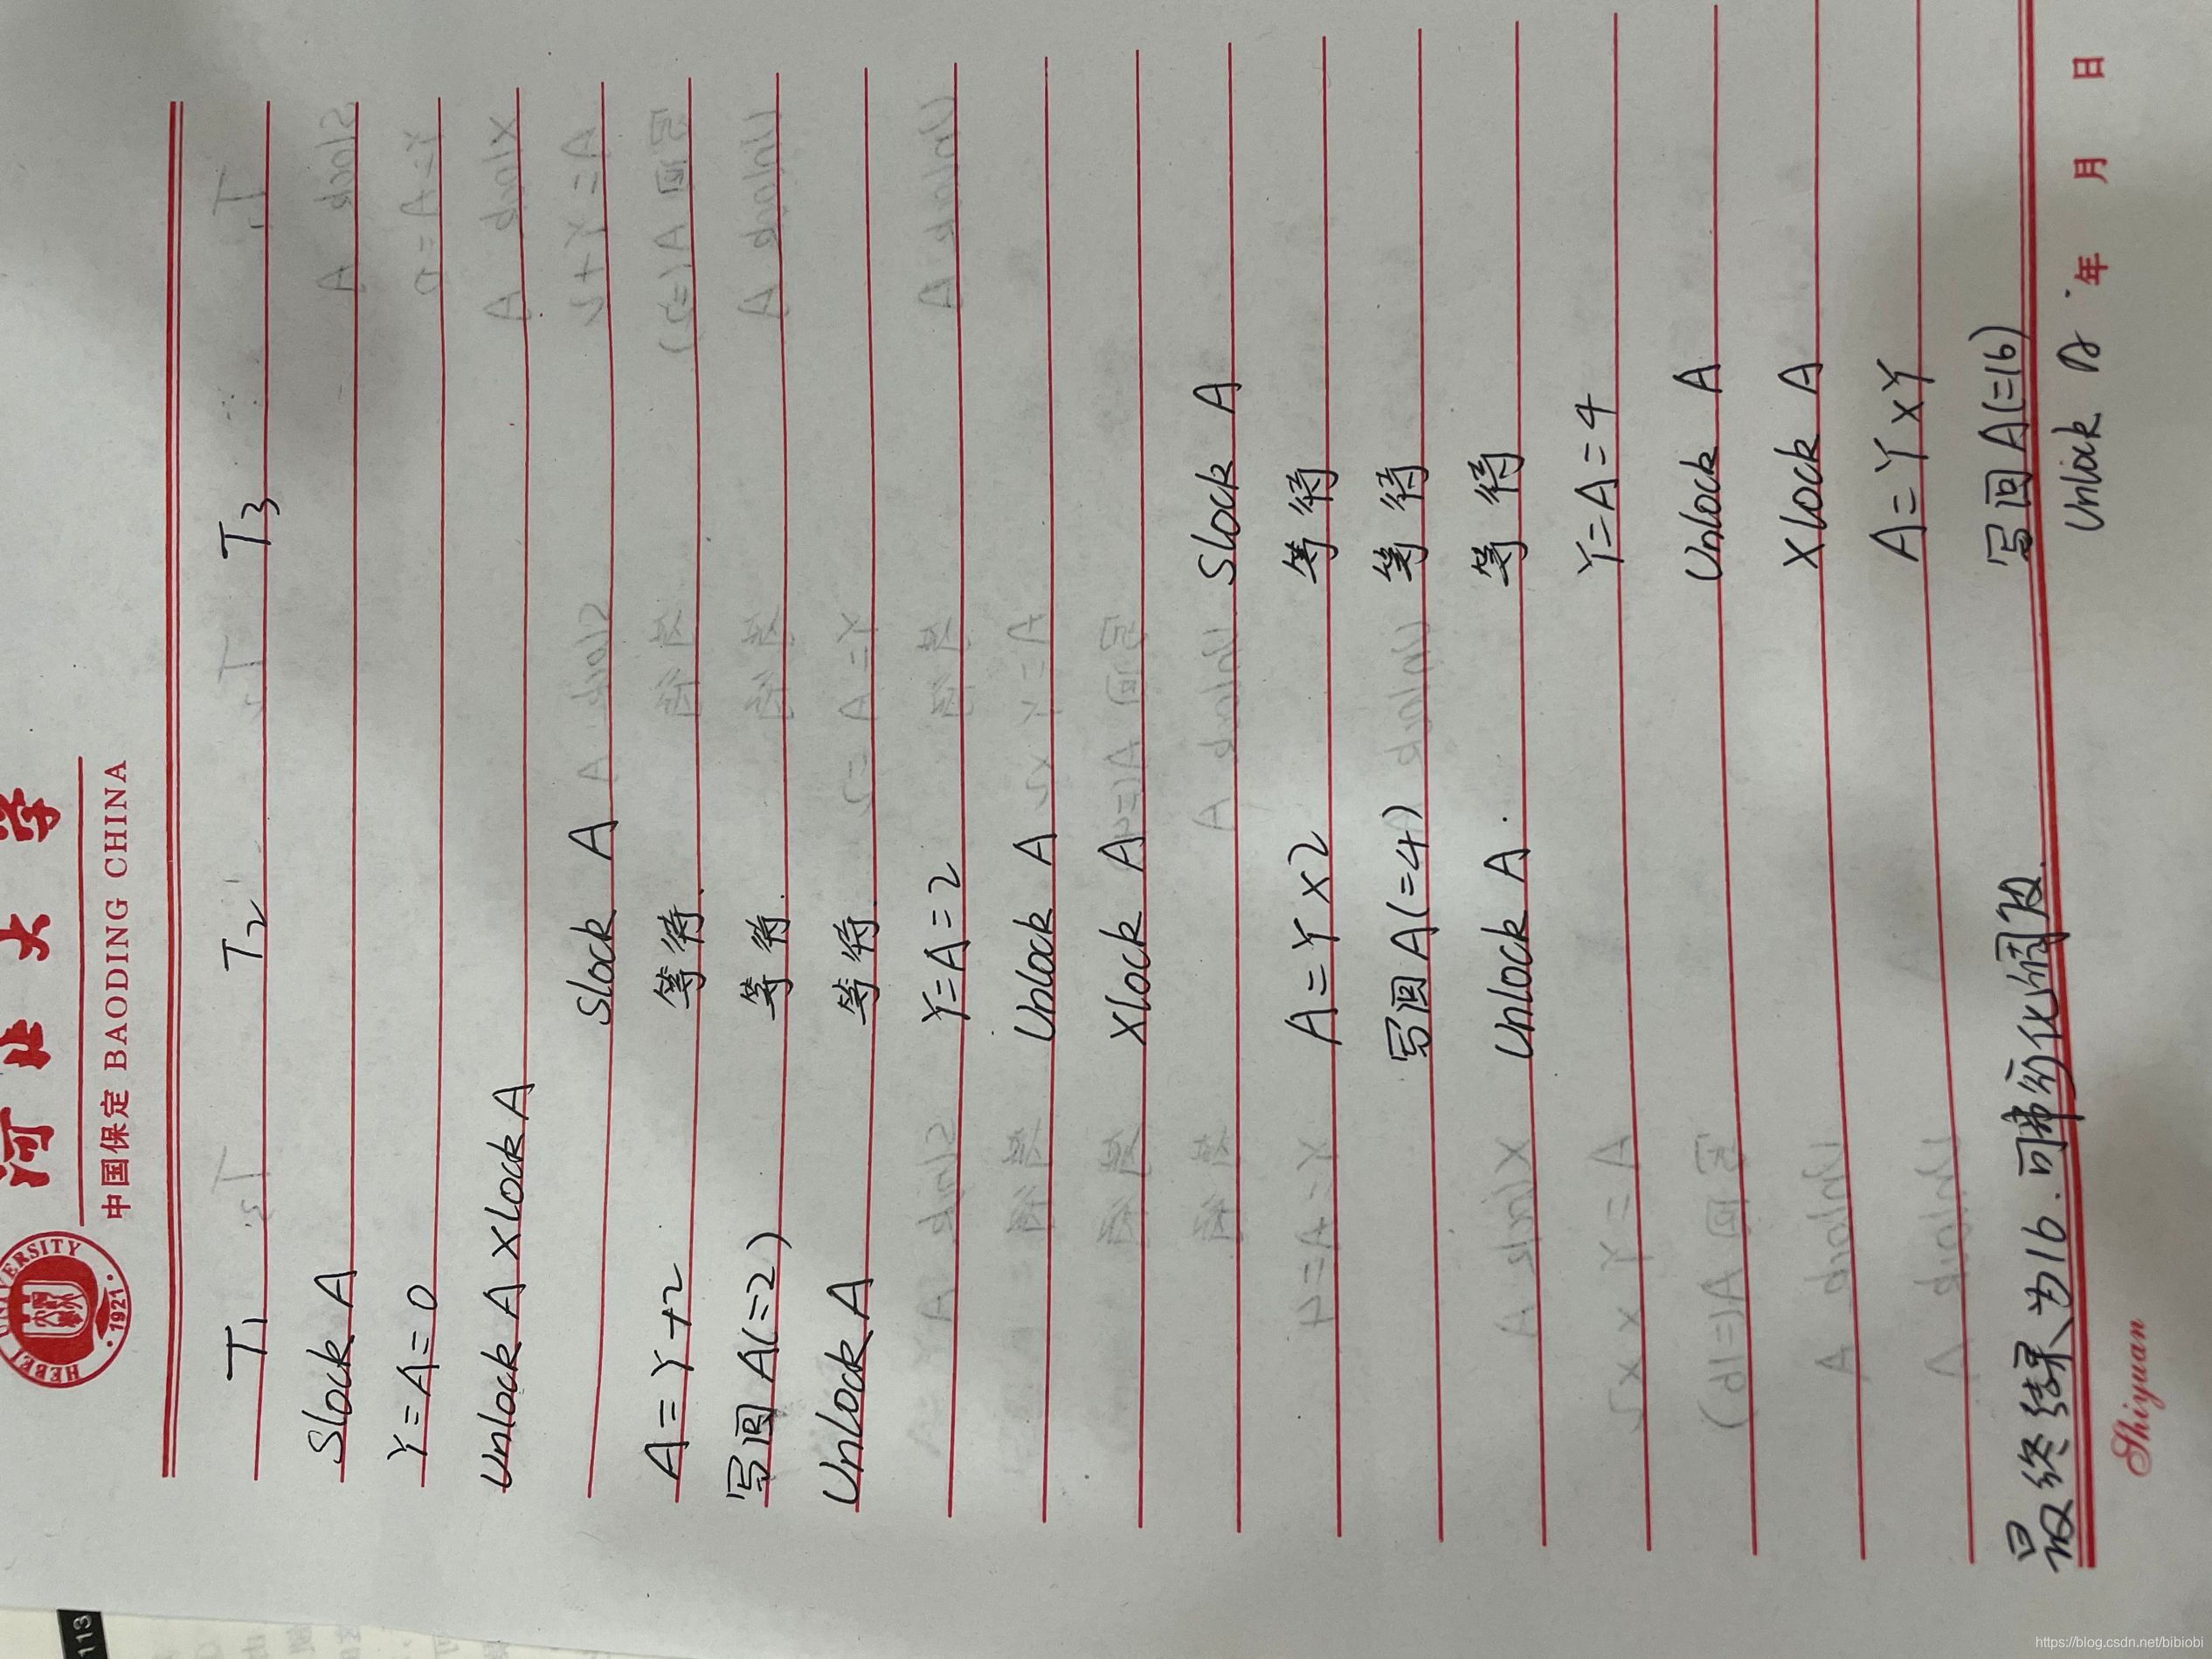 河北大学
中国保定 BAODING CHINA
HEBEI UNIVERSITY
1921
T1 T2 T3
Slock A
Y=A=0
Unlock A Xlock A
Slock A
A=Y+2 等待
写回A(=2) 等待
Unlock A 等待
Y=A=2
Unlock A
Xlock A
Slock A
A=Y×2 等待
写回A(=4) 等待
Unlock A 等待
Y=A=4
Unlock A
Xlock A
A=Y×Y
写回A(=16)
最终结果为16.可串行化调度.
Unlock A
年 月 日
Shiyuan
113
https://blog.csdn.net/bibiobi